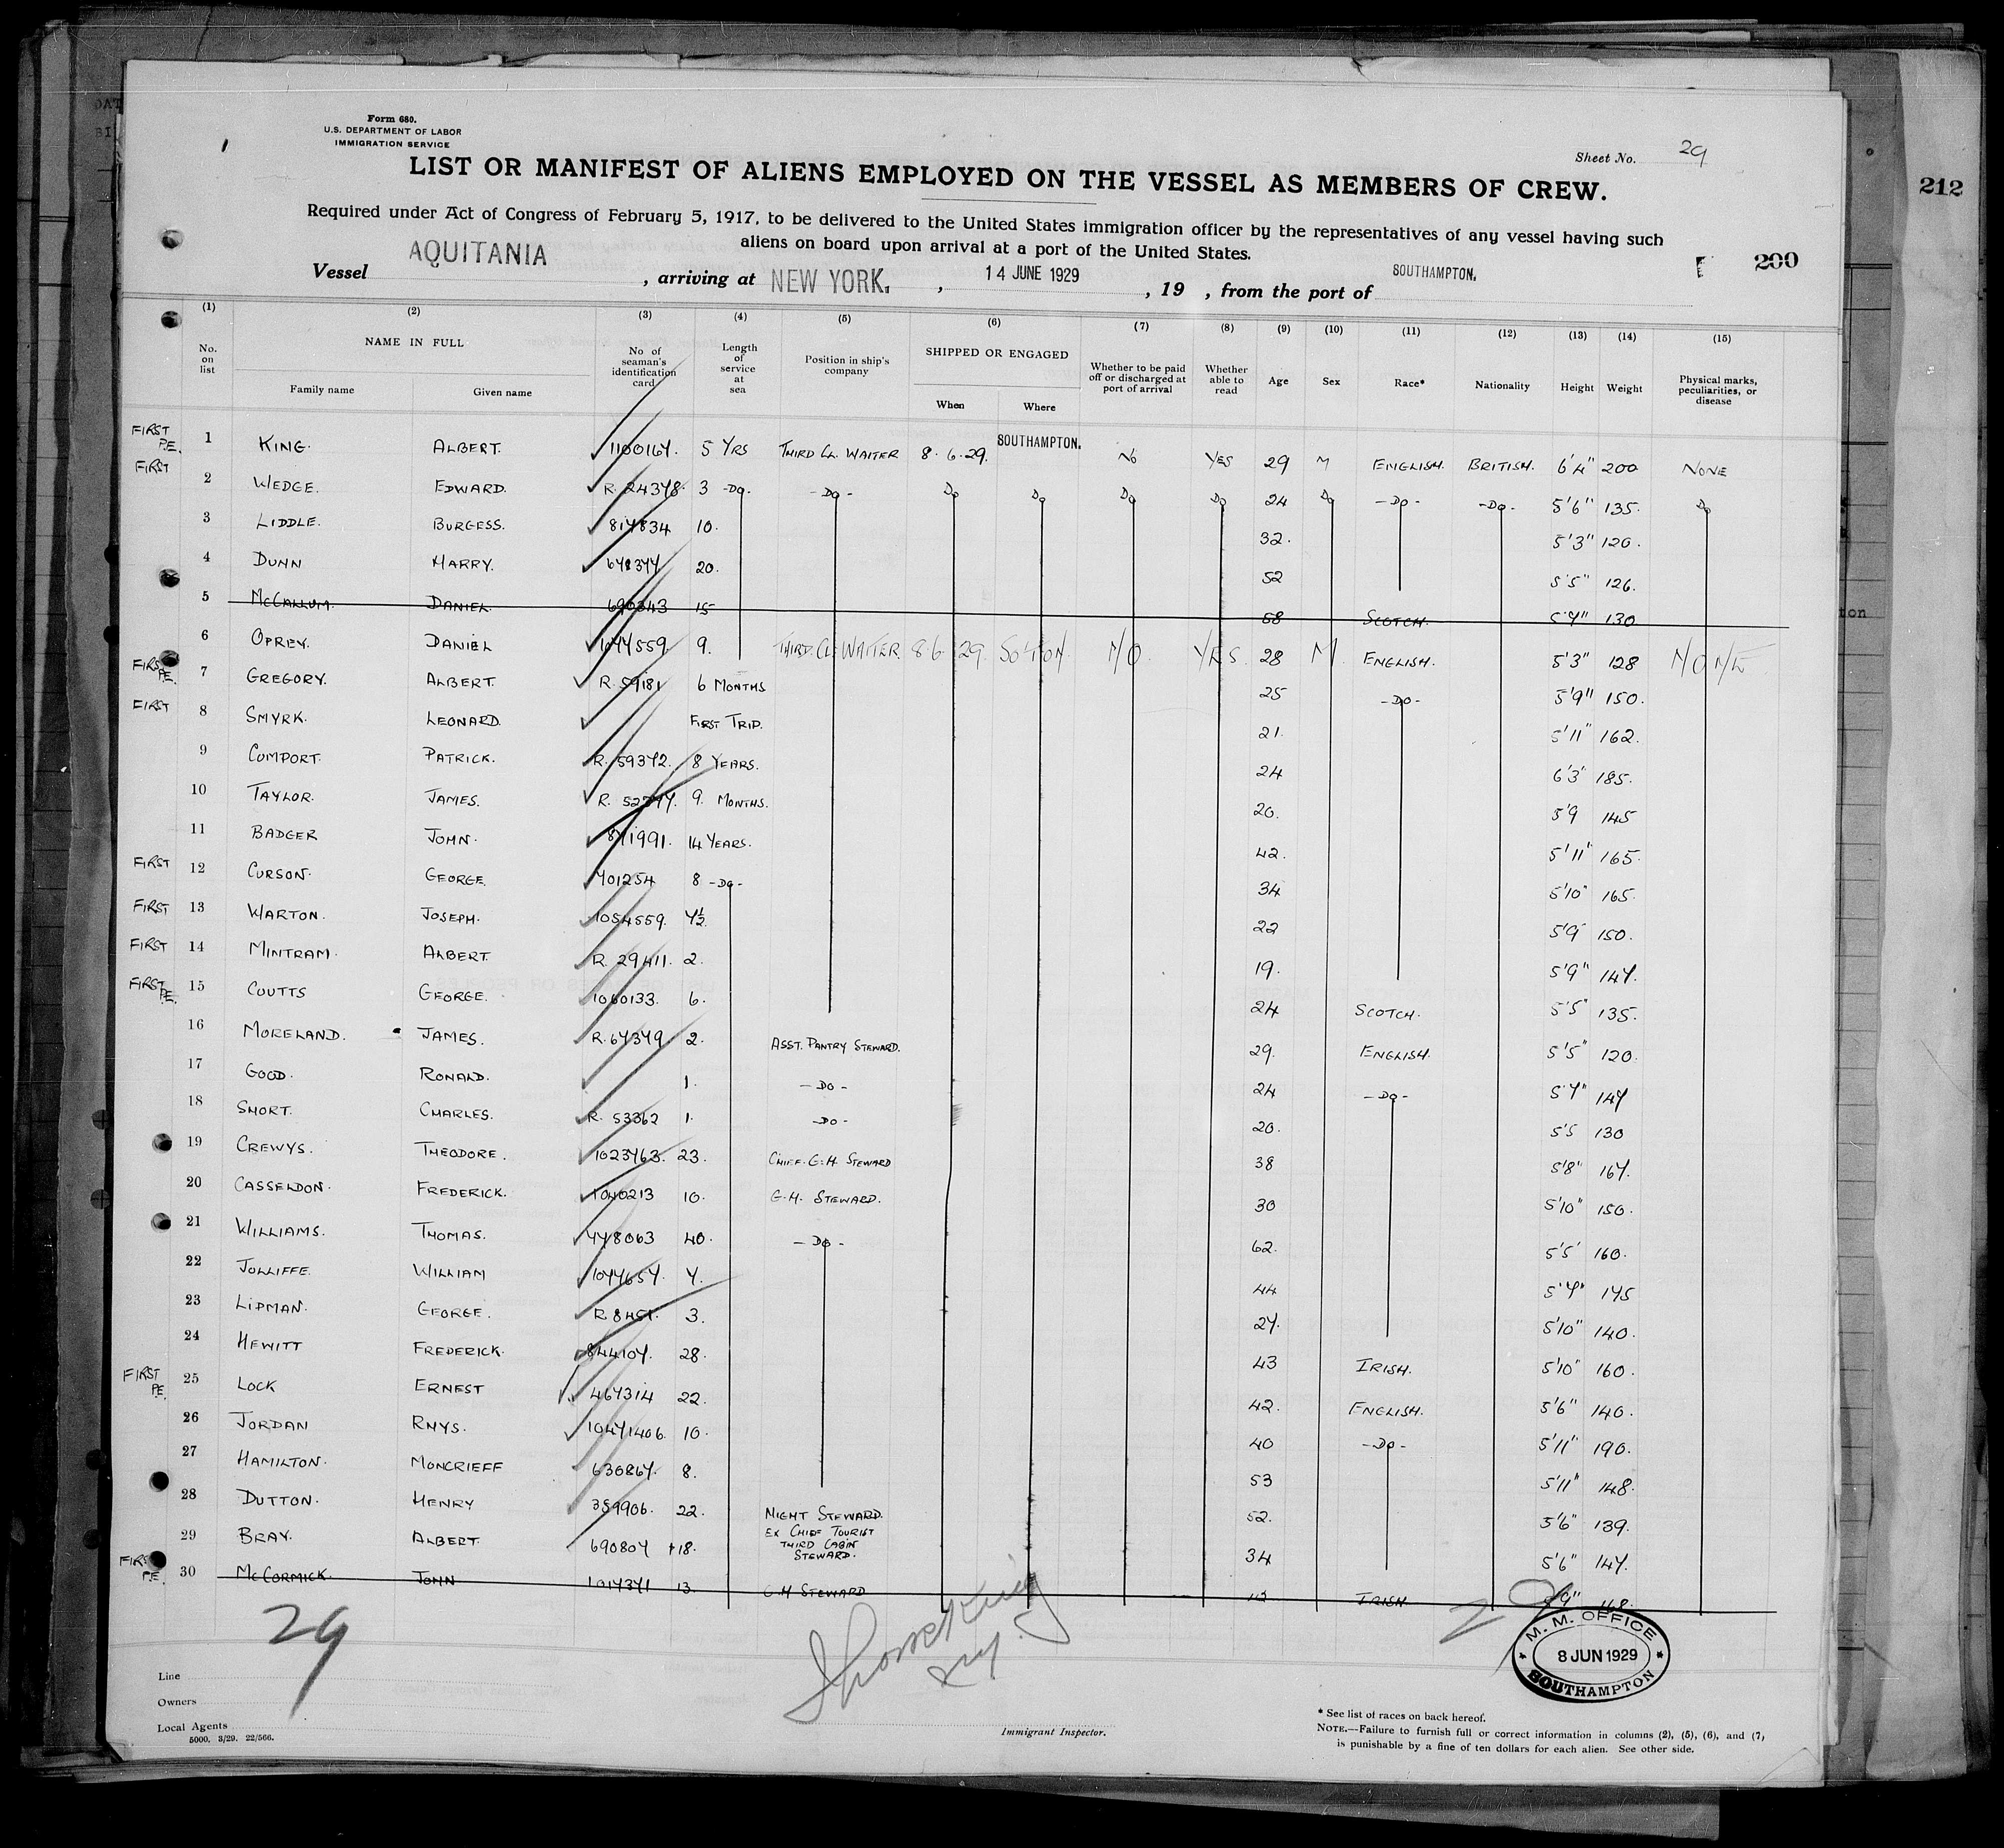 Form 680.
U.S. DEPARTMENT OF LABOR
IMMIGRATION SERVICE
Sheet No. 29
LIST OR MANIFEST OF ALIENS EMPLOYED ON THE VESSEL AS MEMBERS OF CREW.
212
Required under Act of Congress of February 5, 1917, to be delivered to the United States immigration officer by the representatives of any vessel having such
aliens on board upon arrival at a port of the United States.
200
Vessel AQUITANIA, arriving at NEW YORK, 14 JUNE 1929, 19 , from the port of SOUTHAMPTON.
(1) (2) (3) (4) (5) (6) (7) (8) (9) (10) (11) (12) (13) (14) (15)
No. on list NAME IN FULL Family name Given name No of seaman's identification card Length of service at sea Position in ship's company SHIPPED OR ENGAGED When Where Whether to be paid off or discharged at port of arrival Whether able to read Age Sex Race* Nationality Height Weight Physical marks, peculiarities, or disease
FIRST P.E. 1 KING. ALBERT. 1100167. 5 YRS THIRD CL. WAITER 8.6.29. SOUTHAMPTON. NO YES 29 M ENGLISH. BRITISH. 6'4" 200 NONE
FIRST 2 WEDGE. EDWARD. R. 24378. 3 -DO- -DO- DO DO DO DO 24 DO -DO- -DO- 5'6" 135. DO
3 LIDDLE. BURGESS. 817834 10. 32. 5'3" 120.
4 DUNN HARRY. 678377. 20. 52 5'5" 126.
5 McCALLUM. DANIEL. 690343 15 58 SCOTCH. 5'7" 130
6 OPREY. DANIEL 1077559 9. THIRD CL. WAITER. 8.6.29. SO'TON NO. YES. 28 M ENGLISH. 5'3" 128 NONE
FIRST P.E. 7 GREGORY. ALBERT. R. 59181 6 MONTHS 25 -DO- 5'9" 150.
FIRST 8 SMYRK. LEONARD. FIRST TRIP. 21. 5'11" 162.
9 COMPORT. PATRICK. R. 59372. 8 YEARS. 24 6'3" 185.
10 TAYLOR. JAMES. 9. MONTHS. 20. 5'9 145
11 BADGER JOHN. 871991. 14 YEARS. 42. 5'11" 165.
FIRST 12 CURSON. GEORGE. 701254 8 -DO- 34 5'10" 165.
FIRST 13 WARTON. JOSEPH. 1054559. 7½. 22 5'9" 150.
FIRST 14 MINTRAM. ALBERT R. 29411. 2. 19. 5'9" 147.
FIRST P.E. 15 COUTTS GEORGE. 1060133. 6. 24 SCOTCH. 5'5" 135.
16 MORELAND. JAMES. R. 67379. 2. ASST. PANTRY STEWARD. 29. ENGLISH. 5'5" 120.
17 GOOD. RONALD. 1. -DO- 24 -DO- 5'7" 147
18 SHORT. CHARLES. R. 53362 1. -DO- 20. 5'5 130
19 CREWYS. THEODORE. 1023763. 23. CHIEF. G.H. STEWARD 38 5'8" 167.
20 CASSELDON. FREDERICK. 1040213 10. G.H. STEWARD. 30 5'10" 150.
21 WILLIAMS. THOMAS. 778063 40. -DO- 62. 5'5' 160.
22 JOLLIFFE. WILLIAM 1077657. 7. 44 5'7" 175
23 LIPMAN. GEORGE. R. 8451. 3. 27. 5'10" 140.
24 HEWITT FREDERICK. 844107. 28. 43 IRISH. 5'10" 160.
FIRST P.E. 25 LOCK ERNEST 467314 22. 42. ENGLISH. 5'6" 140.
26 JORDAN RHYS. 10471406. 10. 40 -DO- 5'11" 190.
27 HAMILTON. MONCRIEFF 630867. 8. 53 5'11" 148.
28 DUTTON. HENRY 359906. 22. NIGHT STEWARD. 52. 5'6" 139.
29 BRAY. ALBERT. 690807 18. EX CHIEF TOURIST THIRD CABIN STEWARD. 34 5'6" 147.
FIRST P.E. 30 McCORMICK. JOHN 1017371 13. G.H STEWARD IRISH. 168.
29
29
M. M. OFFICE
8 JUN 1929
SOUTHAMPTON
Line
Owners
Local Agents
5000. 3/29. 22/566.
Immigrant Inspector.
* See list of races on back hereof.
NOTE.—Failure to furnish full or correct information in columns (2), (5), (6), and (7)
is punishable by a fine of ten dollars for each alien. See other side.